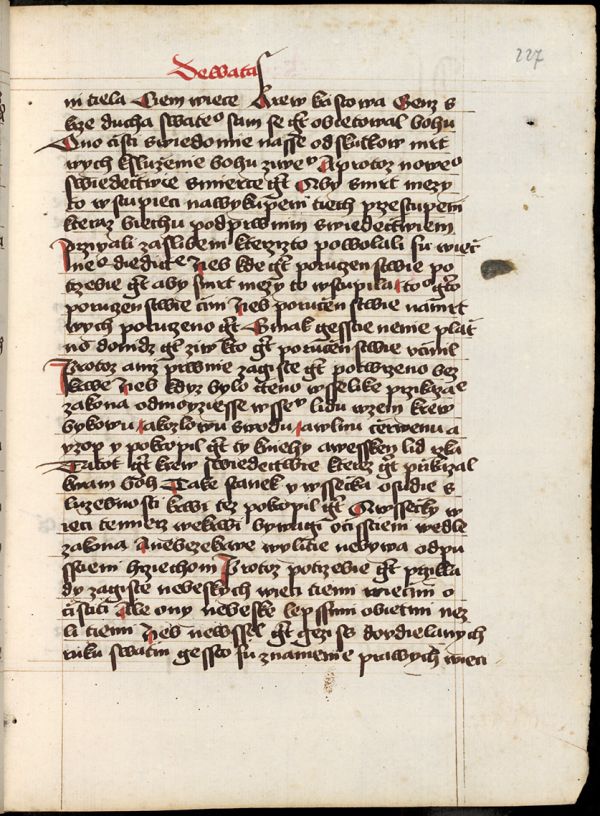 227
Dewata
ni tiela Ciem wiece Krew kristowa Genz s
kze ducha swateº sam se gt obietowal bohu
Cuo cisti swiedomie nasse od skutkow mrt
wych k sluzenie bohu ziweº A protoz noweº
swiedectwie smierce gt Aby smrt mezy
to wstupieci na wykupeni tiech przestupeni
kteraz biechu pod prwnim swiedectwiem
przigali zaslibeni kterizto powolali su wiec
neº diedicteº Neb kde gt poruczenstwie po
tzebie gt aby smrt mezy to wstupila toº gesto
poruczenstwie cini Neb poruczenstwie w mrt
wych poruzeno gt Ginak gesscie neme plat
no doniudz gt ziw kto gt poruczenstwie vcinil
Protoz ani prwnie zagiste gt potwrzeno bez
krwe Neb kdyz bylo cteno wsselike prikazae
zakona od moyziesse wsseº lidu wzem krew
bykowu a kozlowu s wodu a wlnu cerwenu a
yzop y pokropil gt ty knihy a wessken lid rzka
Tatot gt krew swiedectwie kterez gt prikazal
k nam boh Take stanek y wssecka osudie s
luzebnosti krwi tez pokropil gt A wssecky w
ieci temierz we krwi bywagi ocisstieni wedle
zakona A nebezekrwe wylitie nebywa odpu
sstieni hrziechom Protoz potrzebie gt przikla
dy zagiste nebeskych wieci tiemi wiecmi o
cistiti Ale ony nebeske lepssimi obietmi nez
li tiemi Neb newssel gt gezis w dowdielanych
ruku swatin gessto su znamenie prawych wieci